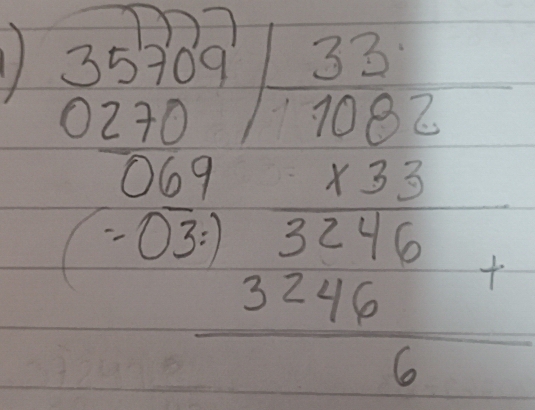 ) 35709 33
0270 1082
069 x33
(-03:) 3246
3246 +
6